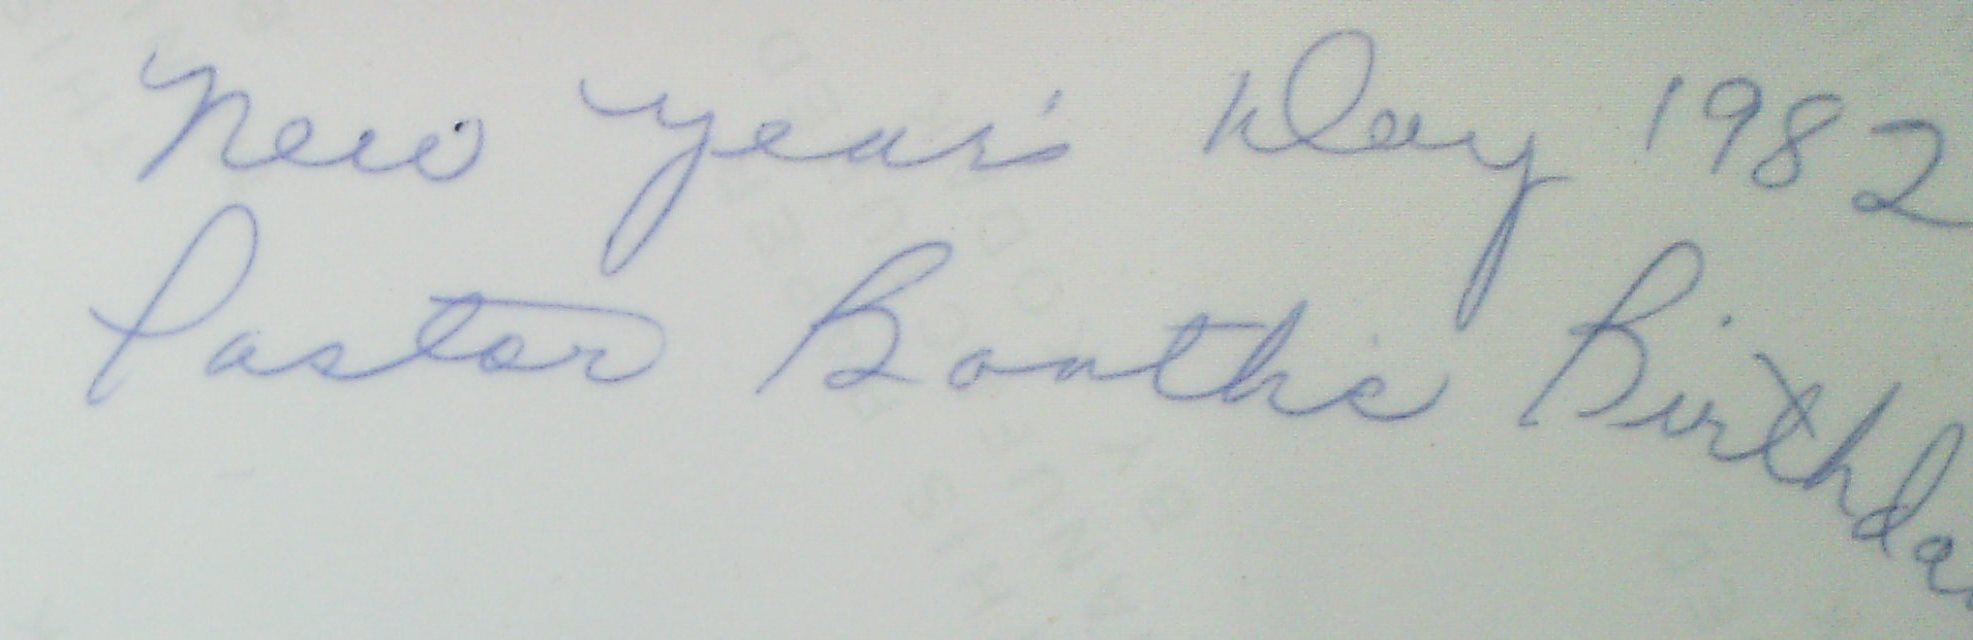 New Year's Day 1982
Pastor Booth's Birthda